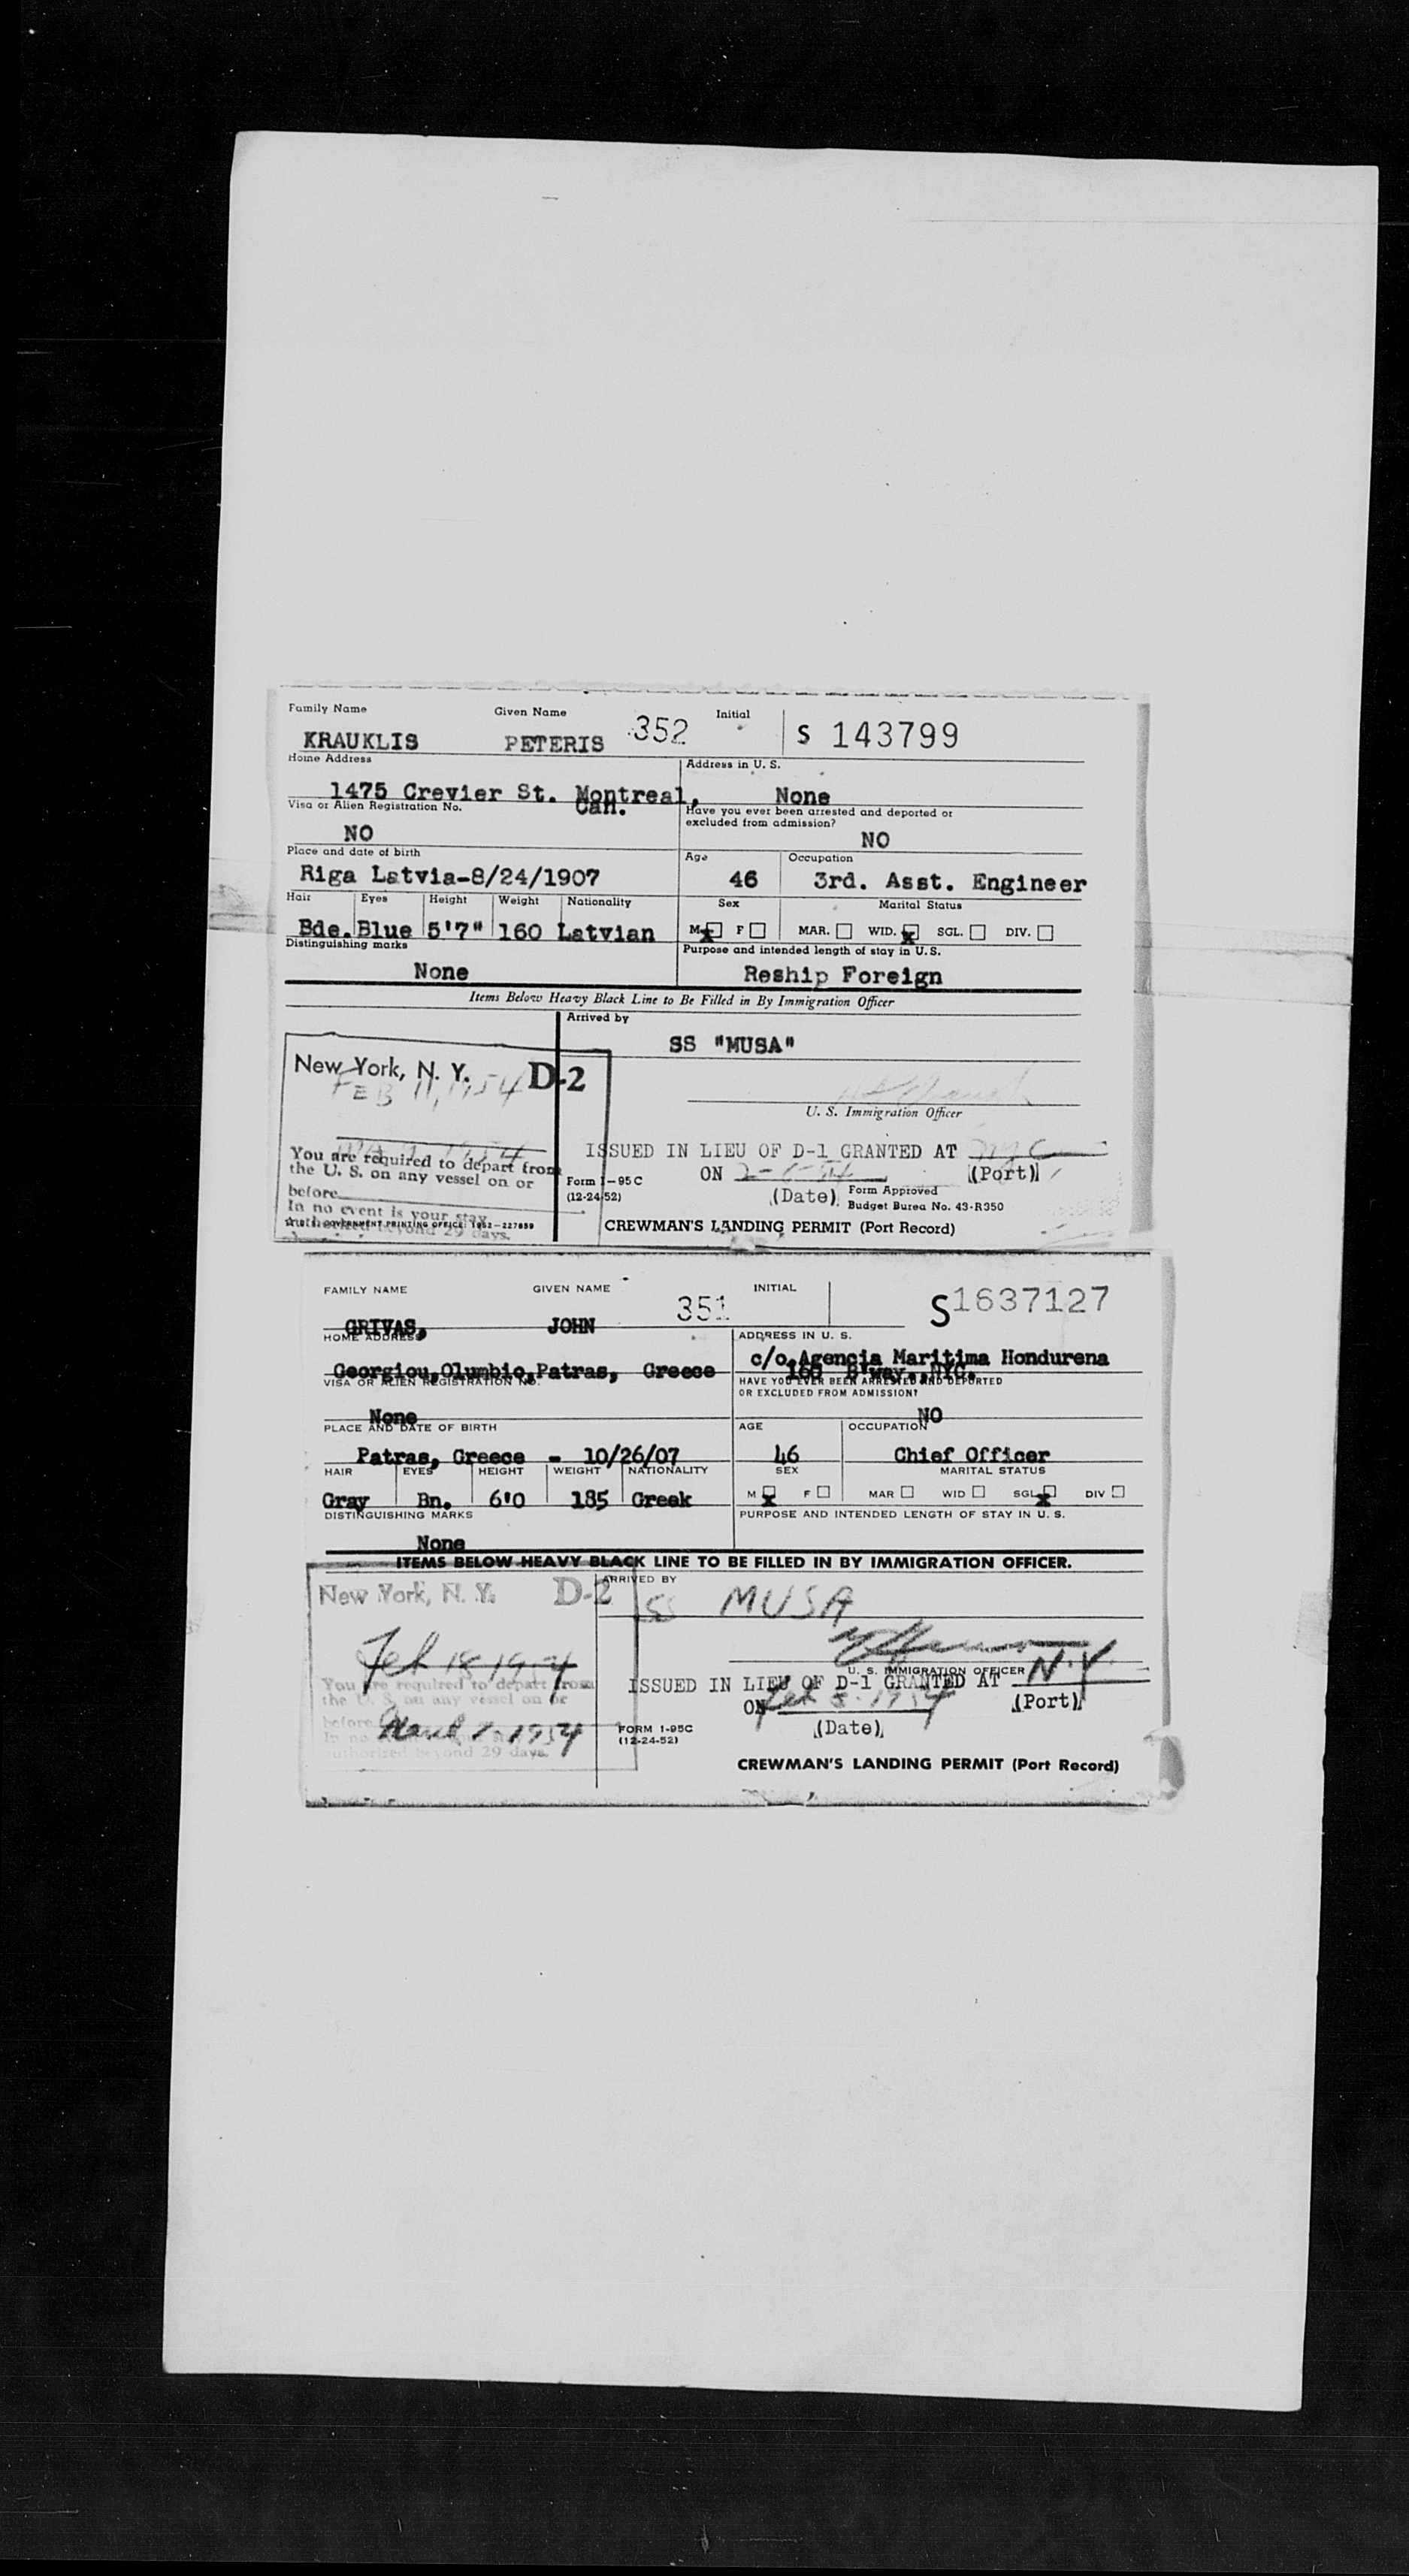 Family Name Given Name Initial
KRAUKLIS PETERIS 352 S 143799
Home Address Address in U. S.
1475 Crevier St. Montreal, Can. None
Visa or Alien Registration No. Have you ever been arrested and deported or
excluded from admission?
NO NO
Place and date of birth Age Occupation
Riga Latvia-8/24/1907 46 3rd. Asst. Engineer
Hair Eyes Height Weight Nationality Sex Marital Status
Bde. Blue 5'7" 160 Latvian M x F MAR. WID. x SGL. DIV.
Distinguishing marks Purpose and intended length of stay in U.S.
None Reship Foreign
Items Below Heavy Black Line to Be Filled in By Immigration Officer
Arrived by
SS "MUSA"
New York, N. Y. D-2
FEB 11, 1954
U. S. Immigration Officer
ISSUED IN LIEU OF D-1 GRANTED AT NYC
You are required to depart from
the U. S. on any vessel on or
ON (Port)
Form I-95C
(12-24-52) (Date) Form Approved
Budget Bureau No. 43-R350
before
In no event is your stay
authorized beyond 29 days.
☆ U.S. GOVERNMENT PRINTING OFFICE: 1952-227859
CREWMAN'S LANDING PERMIT (Port Record)
FAMILY NAME GIVEN NAME INITIAL
GRIVAS, JOHN 351 S1637127
HOME ADDRESS ADDRESS IN U. S.
Georgiou,Olumbio,Patras, Greece c/o Agencia Maritima Hondurena
B'way.,NYC.
VISA OR ALIEN REGISTRATION NO. HAVE YOU EVER BEEN ARRESTED AND DEPORTED
OR EXCLUDED FROM ADMISSION?
None NO
PLACE AND DATE OF BIRTH AGE OCCUPATION
Patras, Greece - 10/26/07 46 Chief Officer
HAIR EYES HEIGHT WEIGHT NATIONALITY SEX MARITAL STATUS
Gray Bn. 6'0 185 Greek M x F MAR WID SGL x DIV
DISTINGUISHING MARKS PURPOSE AND INTENDED LENGTH OF STAY IN U. S.
None
ITEMS BELOW HEAVY BLACK LINE TO BE FILLED IN BY IMMIGRATION OFFICER.
New York, N. Y. D-2 ARRIVED BY
SS MUSA
Feb 18 1954
U. S. IMMIGRATION OFFICER
ISSUED IN LIEU OF D-1 GRANTED AT N.Y.
You are required to depart from
the U. S. on any vessel on or
ON Feb 8-1954 (Port)
before March 1-1954
In no
authorized beyond 29 days.
FORM I-95C
(12-24-52) (Date)
CREWMAN'S LANDING PERMIT (Port Record)